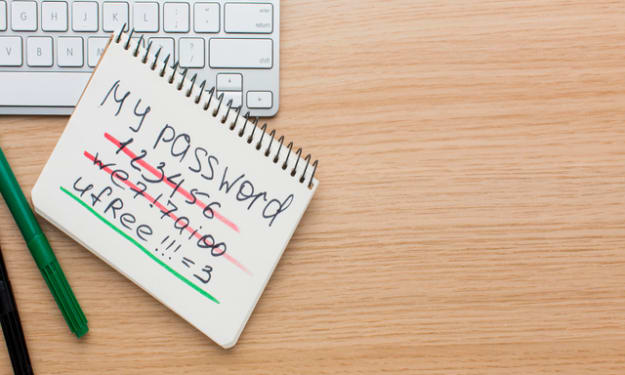 G H J K L : ; " ' enter return
V B N M < , > . ? / shift
My password
123456
we7!7aioo
ufRee!!!=3